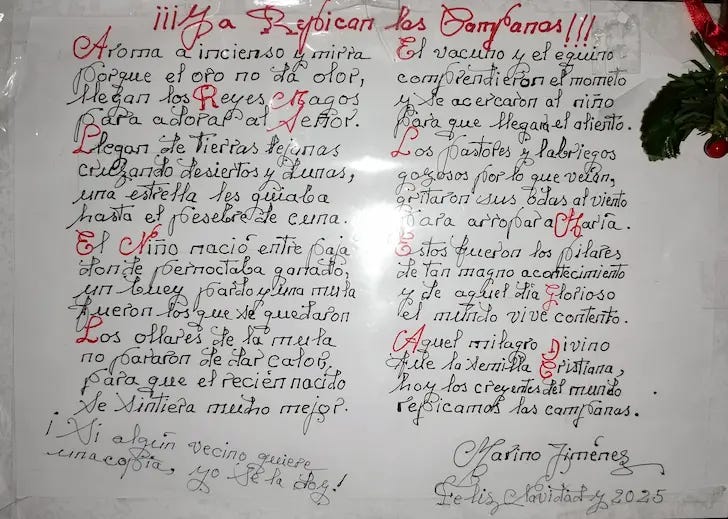 ¡¡¡Ya Repican las Campanas!!!
Aroma a incienso y mirra
porque el oro no da olor,
llegan los Reyes Magos
para adorar al Señor.
Llegan de tierras lejanas
cruzando desiertos y dunas,
una estrella les guiaba
hasta el pesebre de cuna.
El Niño nació entre paja
donde pernoctaba ganado,
un buey pardo y una mula
fueron los que se quedaron
Los ollares de la mula
no pararon de dar calor,
para que el recién nacido
se sintiera mucho mejor.
¡Si algún vecino quiere
una copia, yo se la doy!
El vacuno y el equino
comprendieron el mometo
y se acercaron al niño
para que llegan el aliento.
Los pastores y labriegos
gozosos por lo que veían,
gritaron sus odas al viento
para arropar a María.
Estos fueron los pilares
de tan magno acontecimiento
y de aquel día Glorioso
el mundo vive contento.
Aquel milagro Divino
fue la semilla Cristiana,
hoy los creyentes del mundo
repicamos las campanas.
Marino Jiménez
Feliz Navidad y 2025